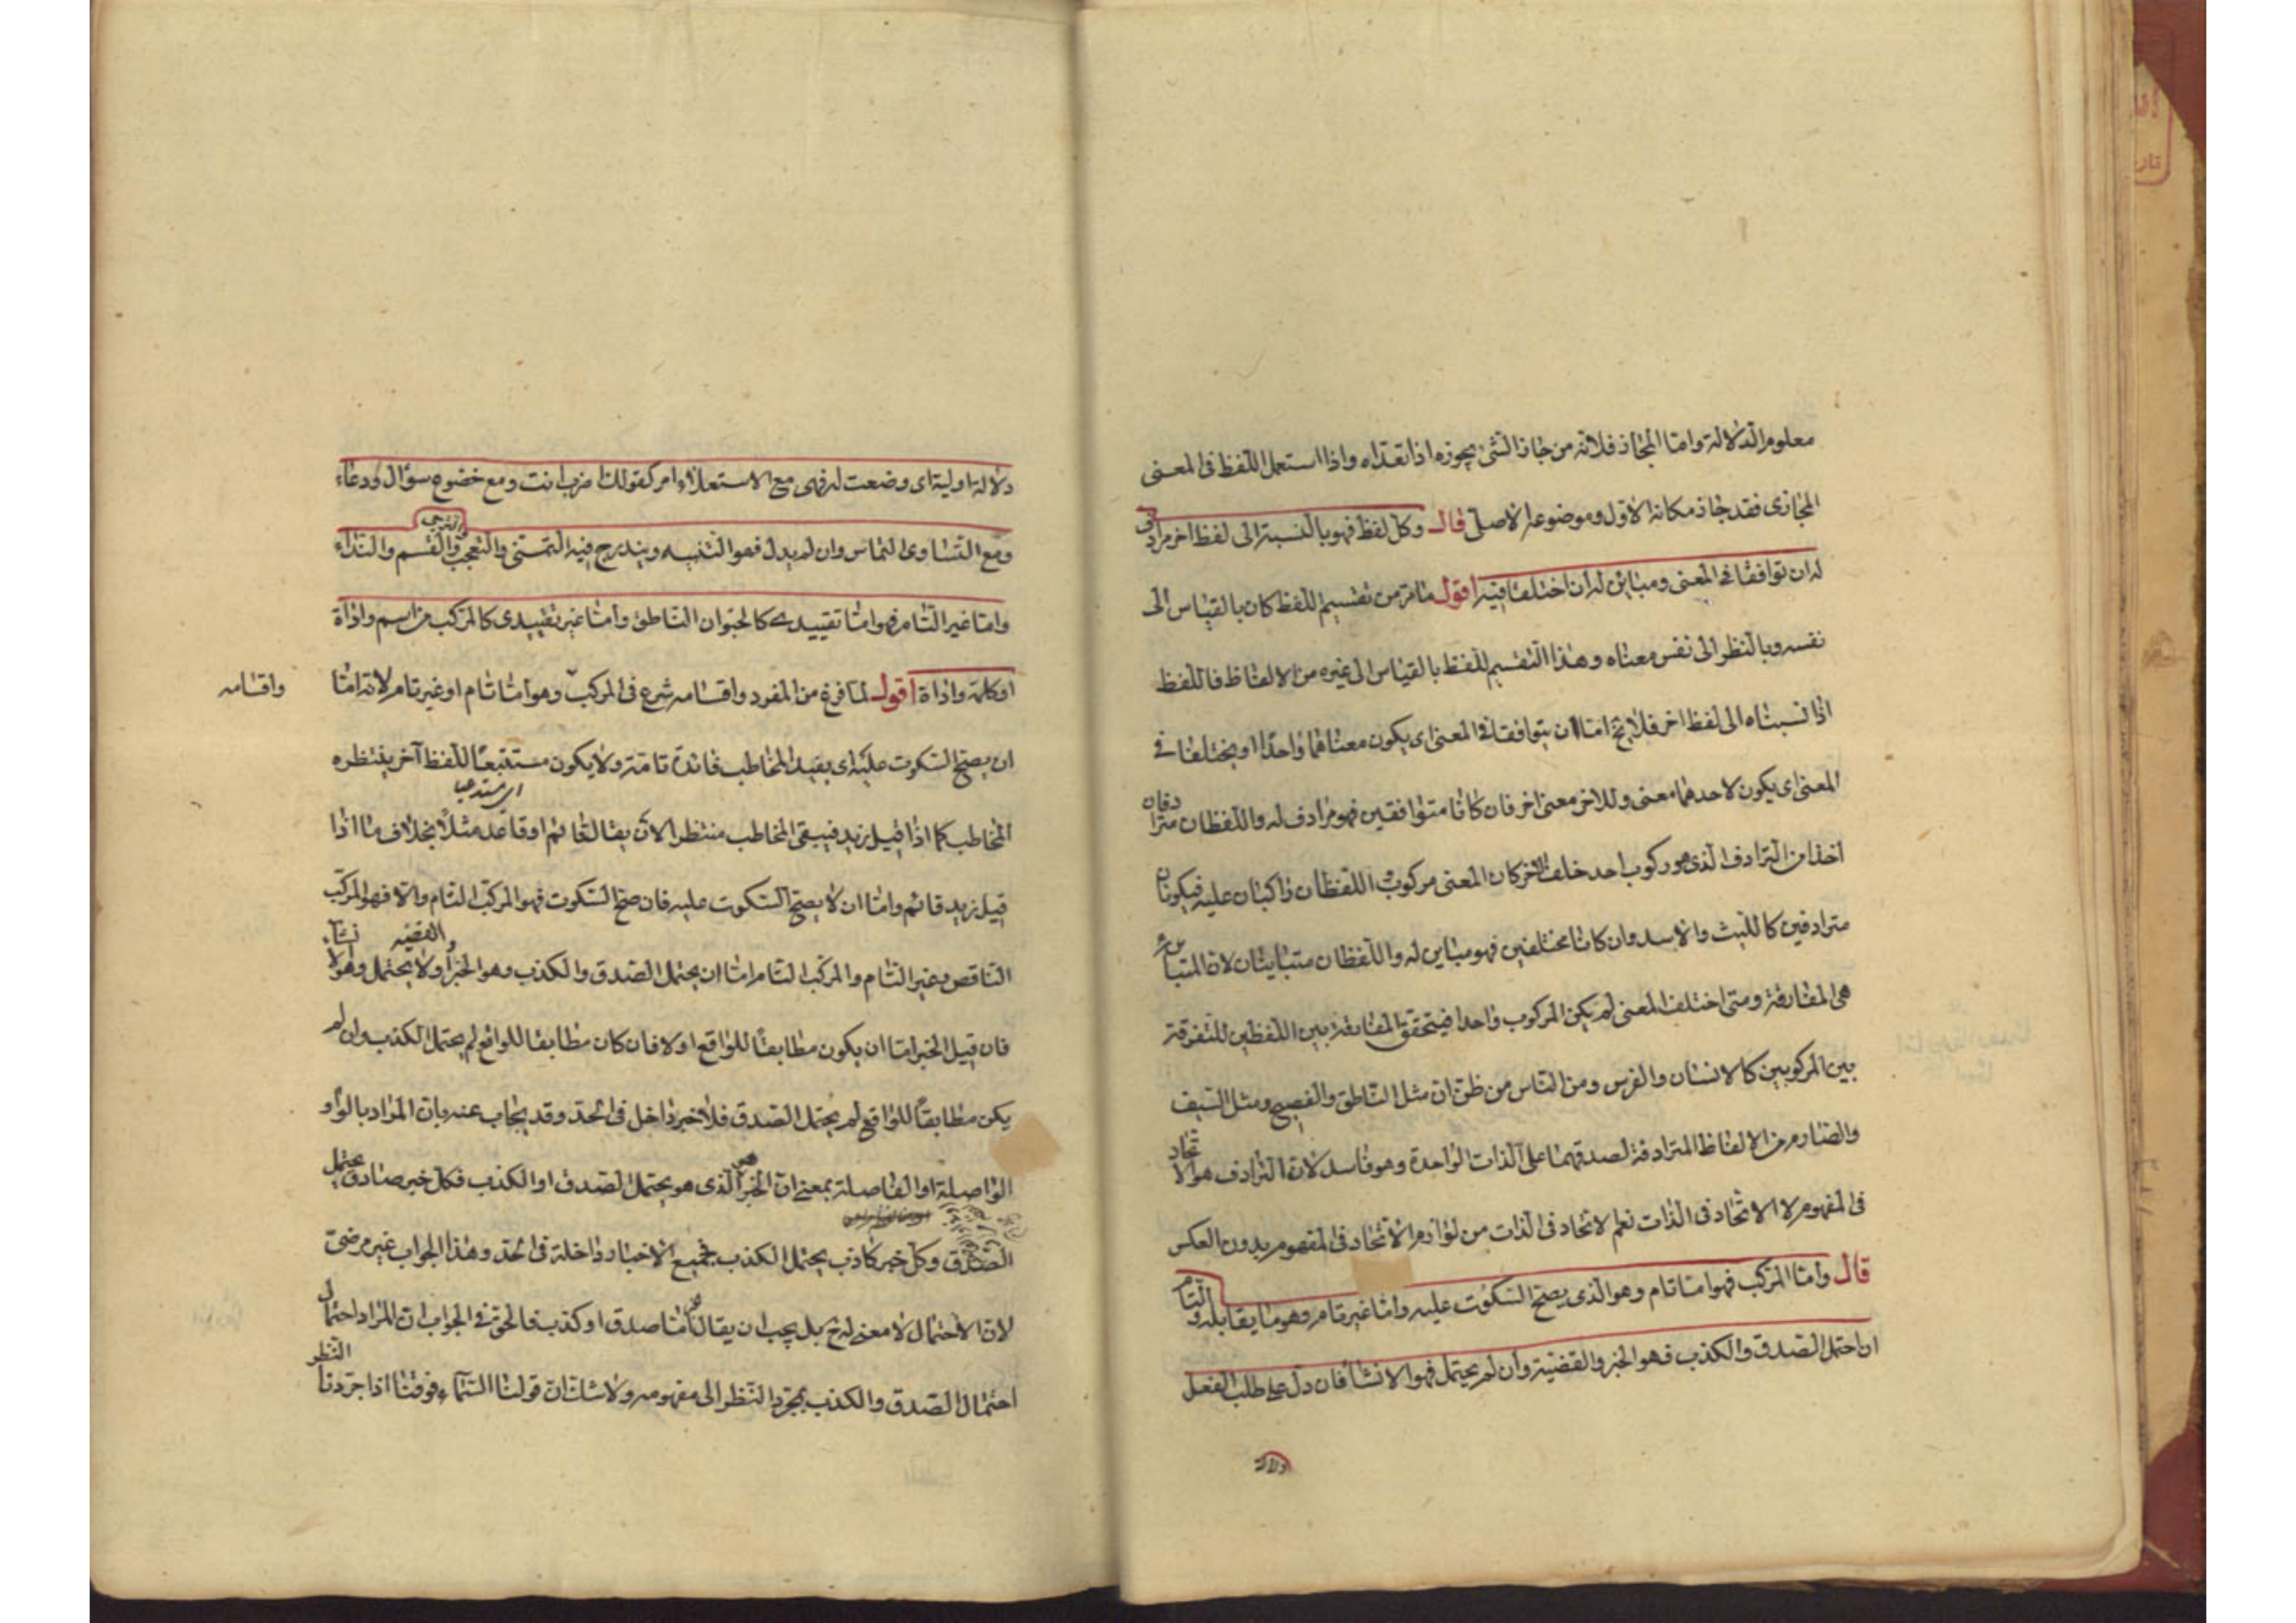 معلوم الدلالة واما المجاز فلانه من جاز الشئ يجوزه اذا تعداه واذا استعمل اللفظ فى المعنى
المجازى فقد جاز مكانه الاول وموضوعه الاصلى قال وكل لفظ فهو بالنسبة الى لفظ اخر مرادف
له ان توافقا فى المعنى ومباين له ان اختلفا فيه اقول ما مر من تقسيم اللفظ كان بالقياس الى
نفسه وبالنظر الى نفس معناه وهذا التقسيم للفظ بالقياس الى غيره من الالفاظ فاللفظ
اذا نسبناه الى لفظ اخر فلا يخ اما ان يتوافقا فى المعنى اى يكون معناهما واحدا او يختلفا فى
المعنى اى يكون لاحدهما معنى وللاخر معنى اخر فان كانا متوافقين فهو مرادف له واللفظان مترادفان
اخذا من الترادف الذى هو ركوب احد خلف اخر كان المعنى مركوب واللفظان راكبان عليه فيكونان
مترادفين كالليث والاسد وان كانا مختلفين فهو مباين له واللفظان متباينان لان المتباينة
هى المفارقة ومتى اختلف المعنى لم يكن المركوب واحدا فيتحقق المفارقة بين اللفظين للتفرقة
بين المركوبين كالانسان والفرس ومن الناس من ظن ان مثل الناطق والفصيح ومثل السيف
والصارم من الالفاظ المترادفة لصدقهما على الذات الواحدة وهو فاسد لان الترادف هو الاتحاد
فى المفهوم لا الاتحاد فى الذات نعم لاتحاد فى الذات من لوازم الاتحاد فى المفهوم بدون العكس
قال واما المركب فهو اما تام وهو الذى يصح السكوت عليه واما غير تام وهو ما يقابله والتام
ان احتمل الصدق والكذب فهو الخبر والقضية وان لم يحتمل فهو الانشا فان دل على طلب الفعل
دلالة
دلالة اولية اى وضعت له فهى مع الاستعلاء امر كقولك اضرب انت ومع خضوع سؤال ودعاء
ومع التساوى التماس وان لم يدل فهو التنبيه ويندرج فيه التمنى والترجى والتعجب والقسم والنداء
واما غير التام فهو اما تقييدى كالحيوان الناطق واما غير تقييدى كالمركب من اسم واداة
او كلمة واداة اقول لما فرغ من المفرد واقسامه شرع فى المركب وهو اما تام او غير تام لانه اما
واقسامه
ان يصح السكوت عليه اى يفيد المخاطب فائدة تامة ولا يكون مستتبعا للفظ آخر ينتظره
اى مستدعيا
المخاطب كما اذا قيل زيد فيبقى المخاطب منتظرا لان يقال قائم او قاعد مثلا بخلاف ما اذا
قيل زيد قائم واما ان لا يصح السكوت عليه فان صح السكوت فهو المركب التام والا فهو المركب
الناقص وغير التام والمركب التام اما ان يحتمل الصدق والكذب وهو الخبر والقضيه او لا يحتمل وهو الانشاء
فان قيل الخبر اما ان يكون مطابقا للواقع او لا فان كان مطابقا للواقع لم يحتمل الكذب وان لم
يكن مطابقا للواقع لم يحتمل الصدق فلا خبر داخل فى الحد وقد يجاب عنه بان المراد بالواو
الواصلة او الفاصلة بمعنى ان الخبر هو الذى هو يحتمل الصدق او الكذب فكل خبر صادق يحتمل
الصدق وكل خبر كاذب يحتمل الكذب فجميع الاخبار داخلة فى الحد وهذا الجواب غير مرضى
لان الاحتمال لا معنى له ح بل يجب ان يقال اما صدق او كذب فالحق فى الجواب ان المراد احتمال
احتمال الصدق والكذب بمجرد النظر الى مفهومه ولا شك ان قولنا السماء فوقنا اذا جردنا النظر